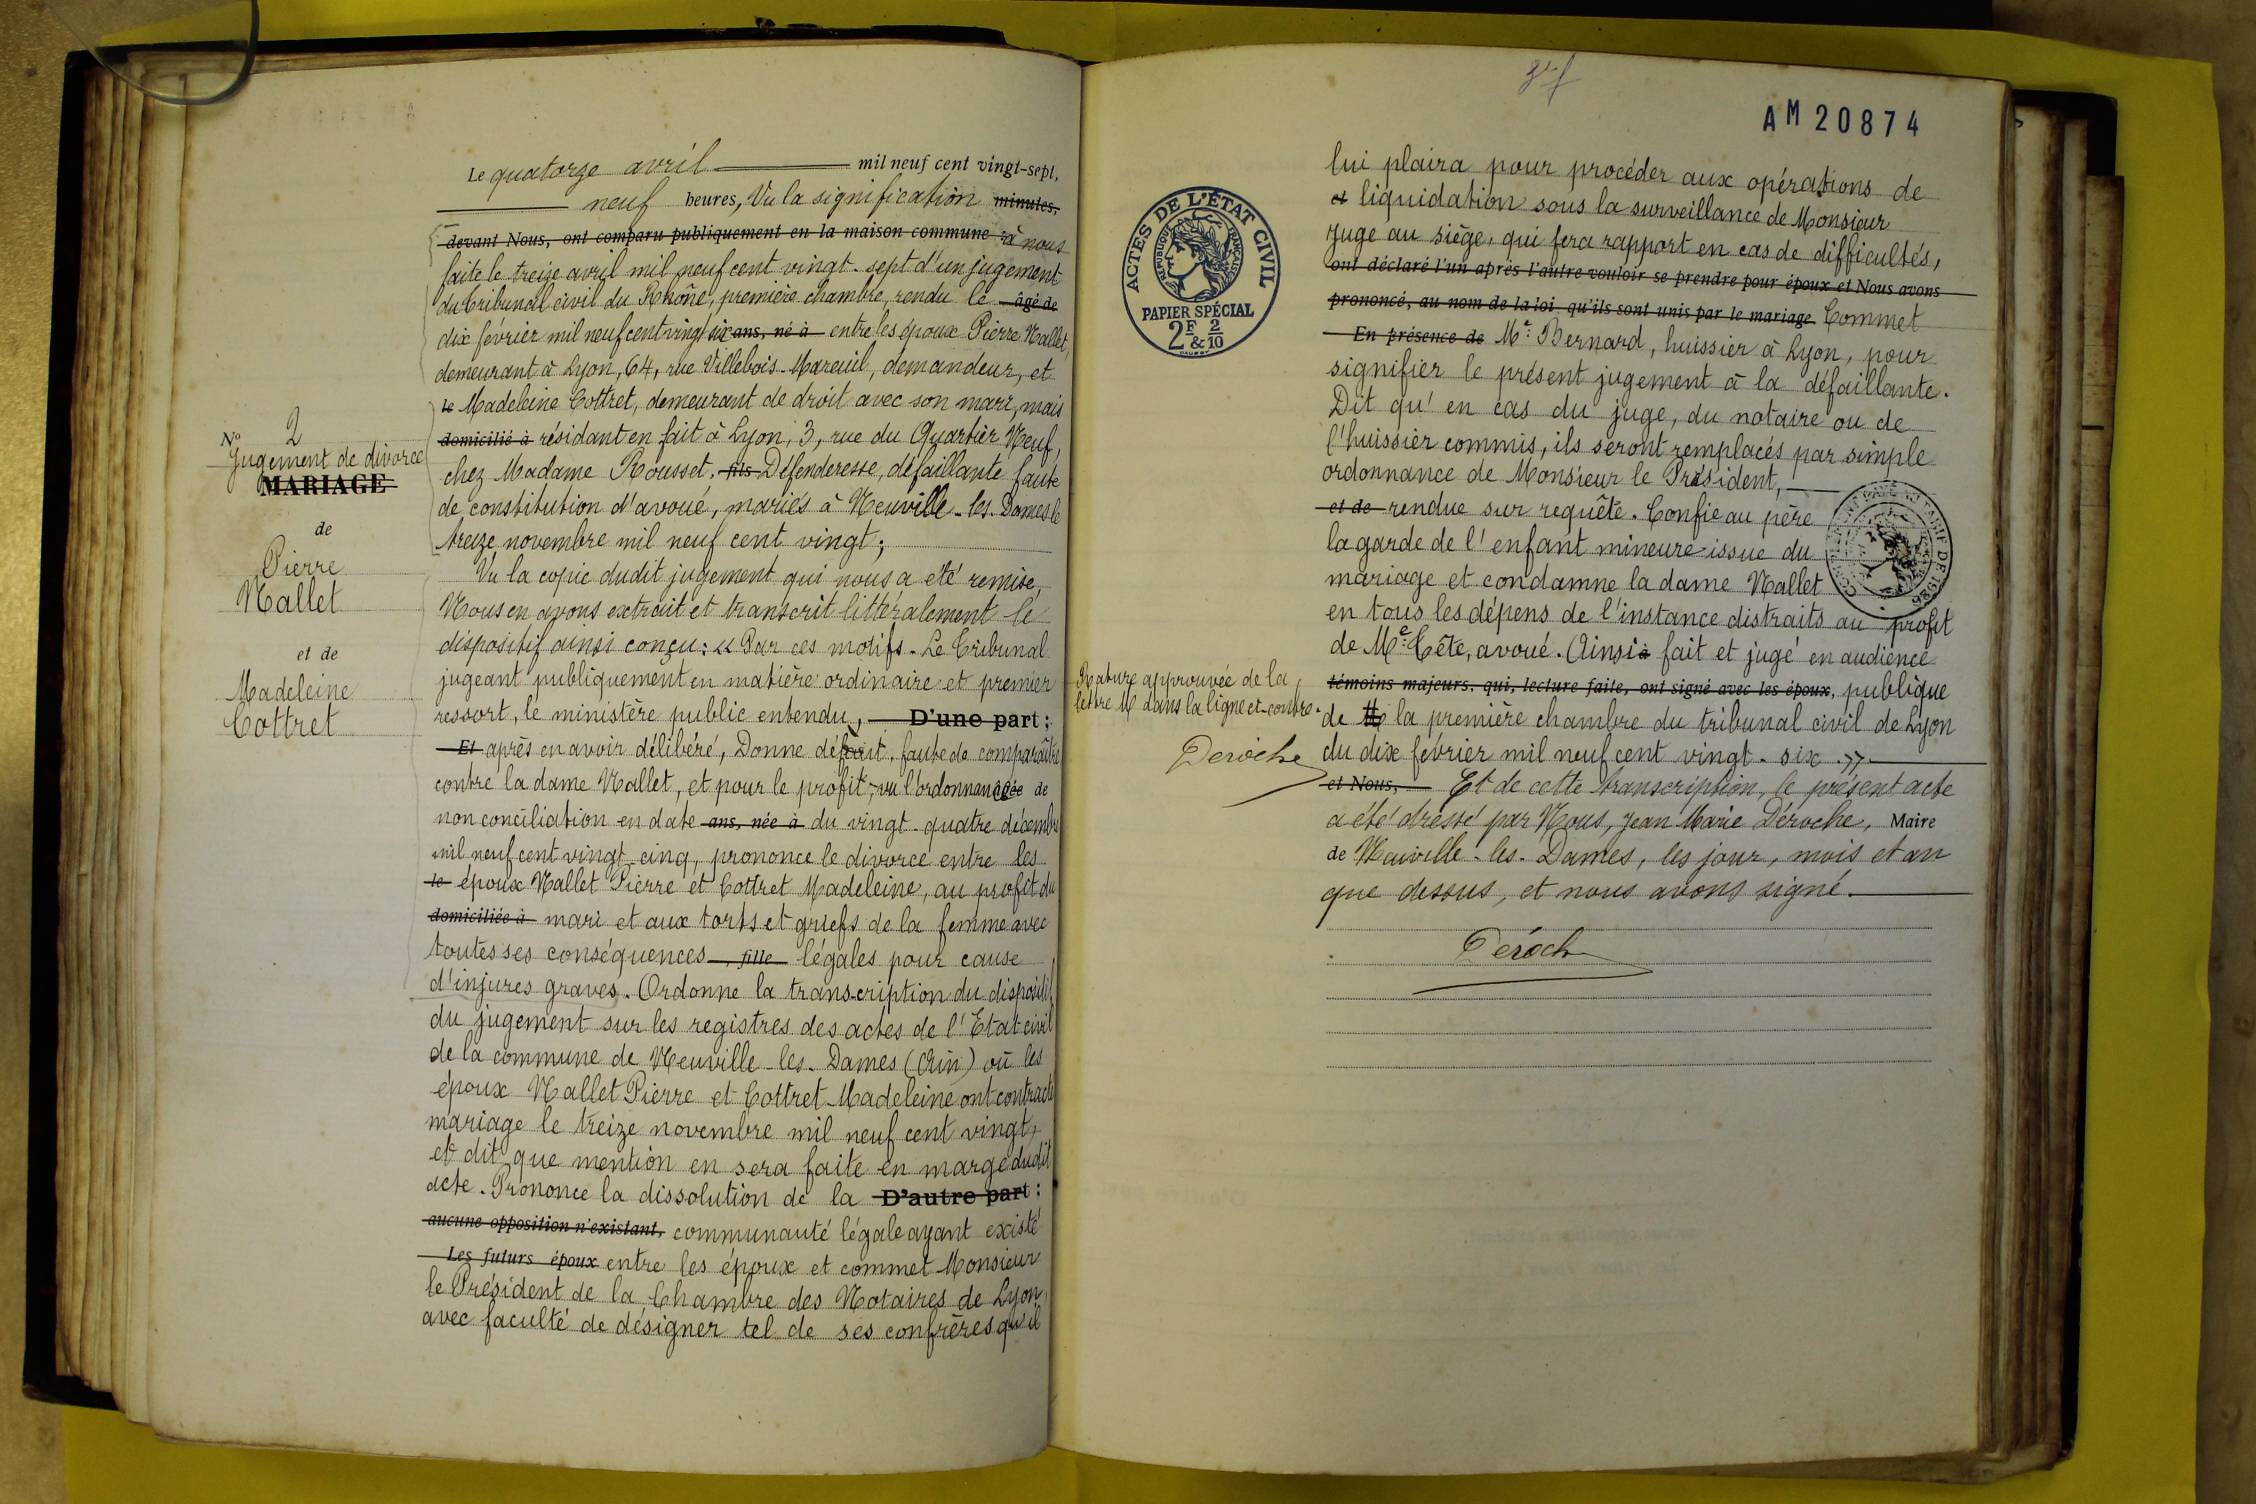 Le quatorze avril mil neuf cent vingt-sept,
neuf heures, Vu la signification minutes,
devant Nous, ont comparu publiquement en la maison commune : à nous
faite le treize avril mil neuf cent vingt-sept d'un jugement
du Tribunal civil du Rhône, première chambre, rendu le âgé de
dix février mil neuf cent vingt six ans, né à entre les époux Pierre Nallet,
demeurant à Lyon, 64, rue Villebois-Mareuil, demandeur, et
le Madeleine Cottret, demeurant de droit avec son mari, mais
domicilié à résidant en fait à Lyon, 3, rue du Quartier Neuf,
chez Madame Rousset, fils Défenderesse, défaillante faute
de constitution d'avoué, mariés à Neuville-les-Dames le
treize novembre mil neuf cent vingt;
Vu la copie dudit jugement qui nous a été remise,
Nous en avons extrait et transcrit littéralement le
dispositif ainsi conçu: « Par ces motifs. Le Tribunal
jugeant publiquement en matière ordinaire et premier
ressort, le ministère public entendu, D'une part ;
Et après en avoir délibéré, Donne défaut, faute de comparaître
contre la dame Nallet, et pour le profit, vu l'ordonnance de
non conciliation en date ans, née à du vingt-quatre décembre
mil neuf cent vingt-cinq, prononce le divorce entre les
le époux Nallet Pierre et Cottret Madeleine, au profit du
domiciliée à mari et aux torts et griefs de la femme avec
toutes ses conséquences, fille légales pour cause
d'injures graves. Ordonne la transcription du dispositif
du jugement sur les registres des actes de l'Etat civil
de la commune de Neuville-les-Dames (Ain) où les
époux Nallet Pierre et Cottret Madeleine ont contracté
mariage le treize novembre mil neuf cent vingt,
et dit que mention en sera faite en marge dudit
acte. Prononce la dissolution de la D'autre part ;
aucune opposition n'existant, communauté légale ayant existé
Les futurs époux entre les époux et commet Monsieur
le Président de la Chambre des Notaires de Lyon,
avec faculté de désigner tel de ses confrères qu'il
N° 2
Jugement de divorce
MARIAGE
de
Pierre
Nallet
et de
Madeleine
Cottret
AM 20874
lui plaira pour procéder aux opérations de
et liquidation sous la surveillance de Monsieur
Juge au siège, qui fera rapport en cas de difficultés,
ont déclaré l'un après l'autre vouloir se prendre pour époux et Nous avons
prononcé, au nom de la loi qu'ils sont unis par le mariage Commet
En présence de Me Bernard, huissier à Lyon, pour
signifier le présent jugement à la défaillante.
Dit qu'en cas du juge, du notaire ou de
l'huissier commis, ils seront remplacés par simple
ordonnance de Monsieur le Président,
et de rendue sur requête. Confie au père
la garde de l'enfant mineure issue du
mariage et condamne la dame Nallet
en tous les dépens de l'instance distraits au profit
de Me Tête, avoué. Ainsi à fait et jugé en audience
témoins majeurs, qui, lecture faite, ont signé avec les époux, publique
de la première chambre du tribunal civil de Lyon
du dix février mil neuf cent vingt-six. »
et Nous, Et de cette transcription, le présent acte
a été dressé par Nous, Jean Marie Déroche, Maire
de Neuville-les-Dames, les jour, mois et an
que dessus, et nous avons signé.
Déroche
Rature approuvée de la
lettre M dans la ligne ci-contre.
Deroche
ACTES DE L'ÉTAT CIVIL
RÉPUBLIQUE FRANÇAISE
PAPIER SPÉCIAL
2F & 2/10
TARIF DE 1926